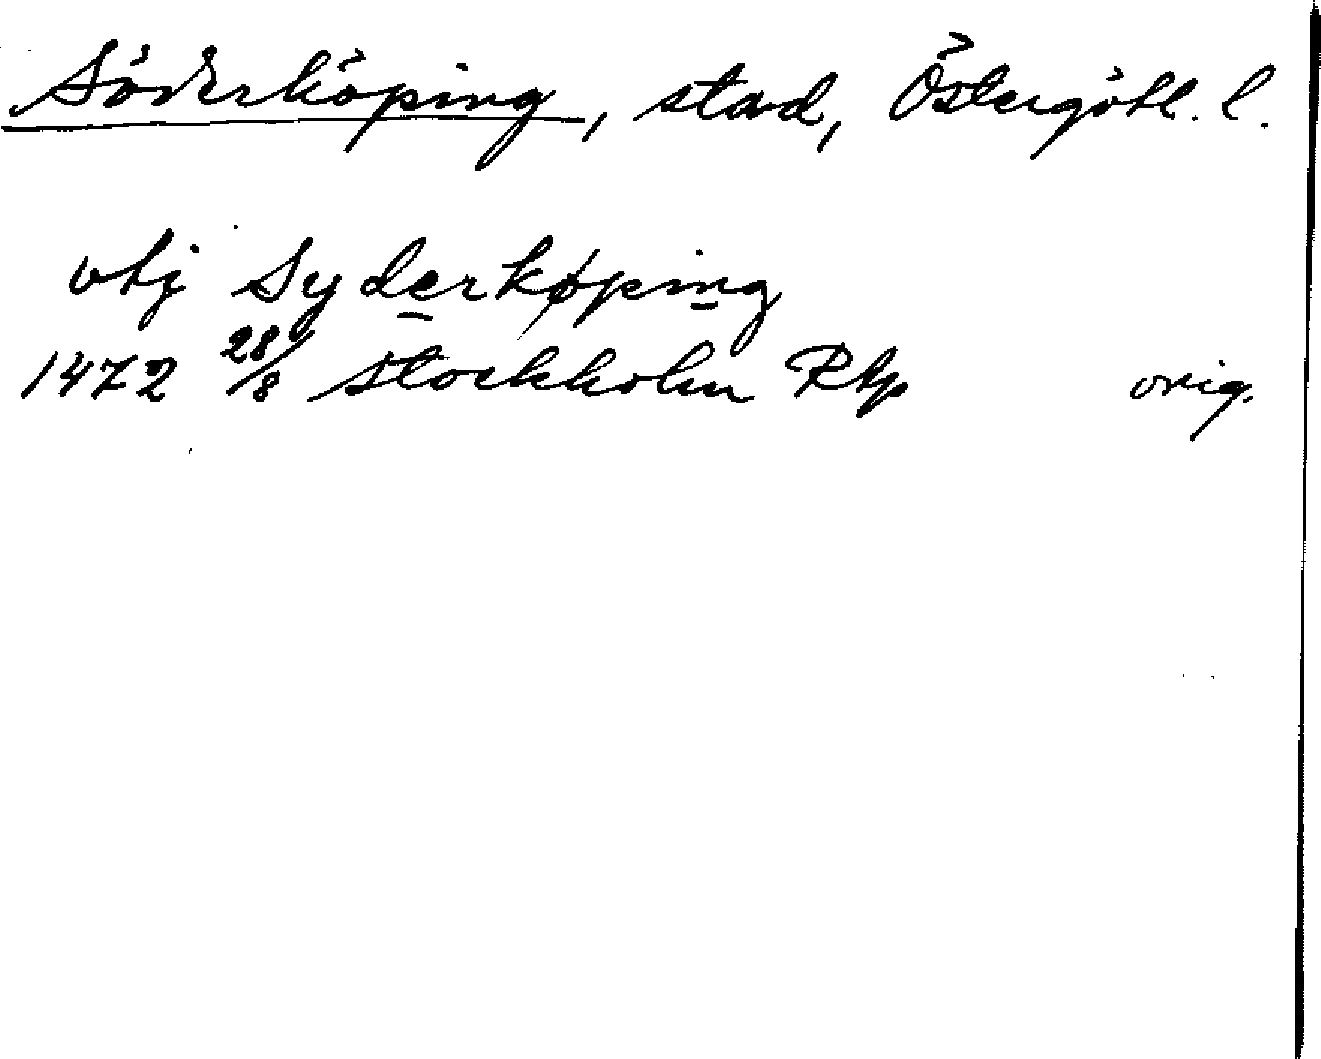 Söderköping, stad, Östergötl. l.
vtj Syderkøping
1472 28/8 Stockholm Rtp orig.